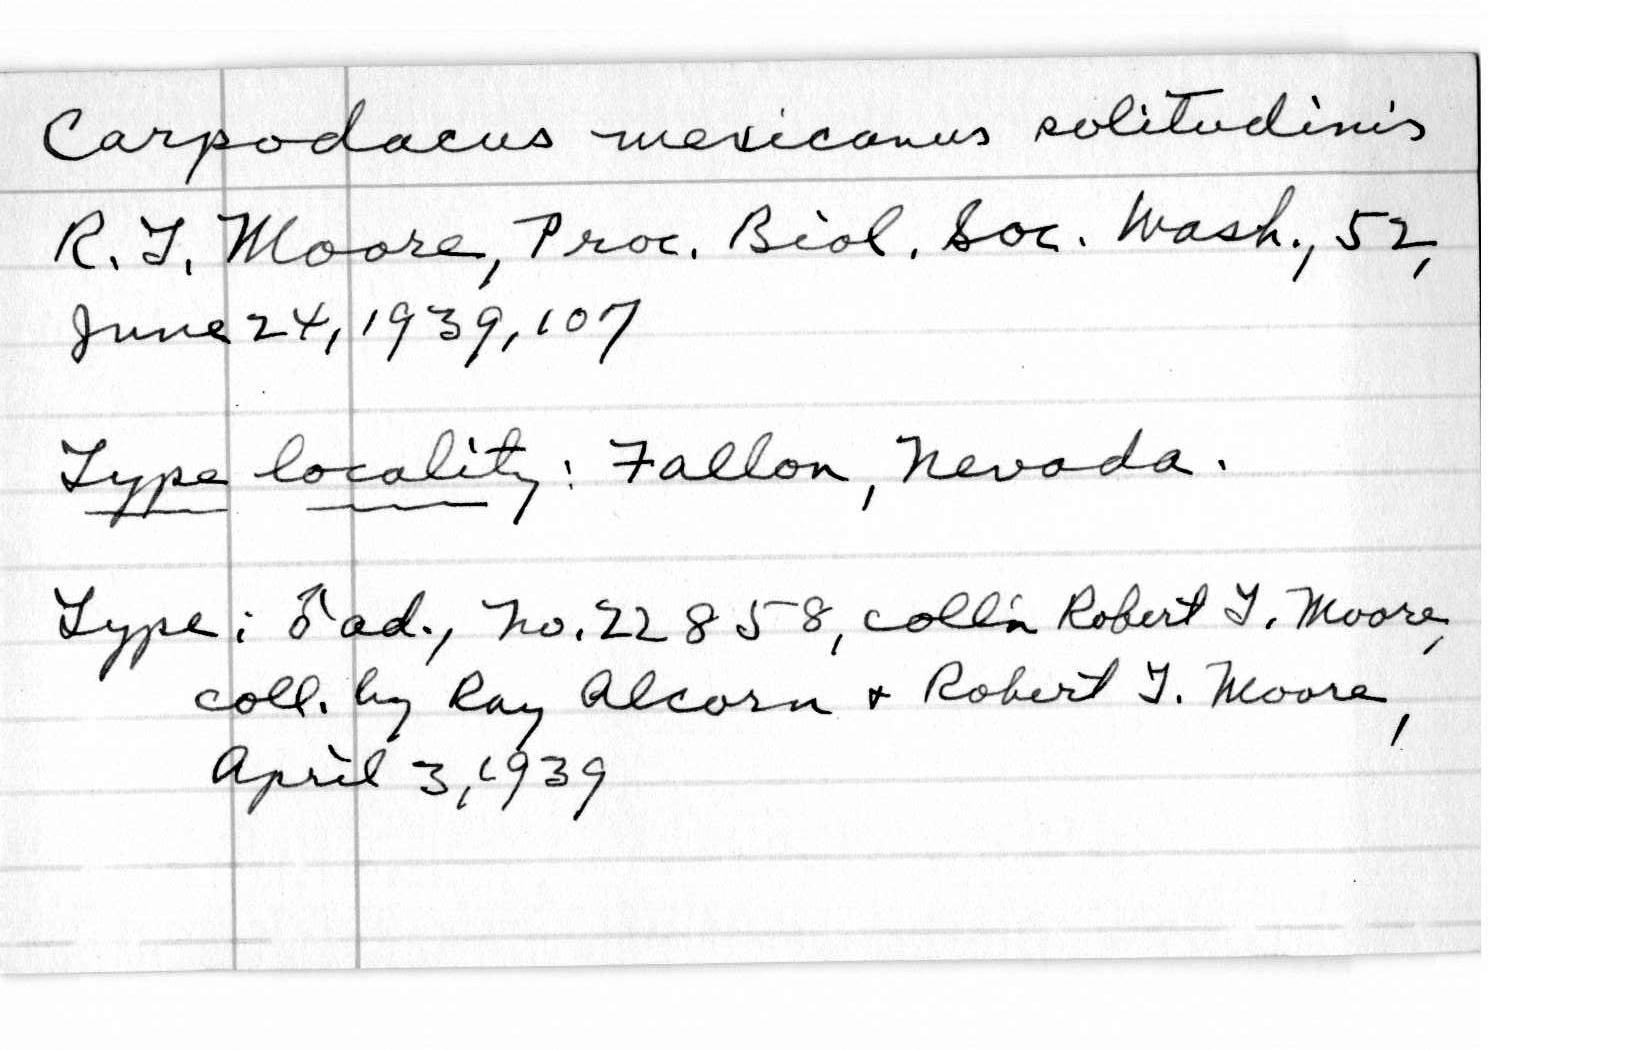 Carpodacus mexicanus solitudinis
R. T. Moore, Proc. Biol. Soc. Wash., 52,
June 24, 1939, 107
Type locality: Fallon, Nevada.
Type: ♂ ad., No. 22858, coll'n Robert T. Moore,
coll. by Ray Alcorn + Robert T. Moore,
April 3, 1939